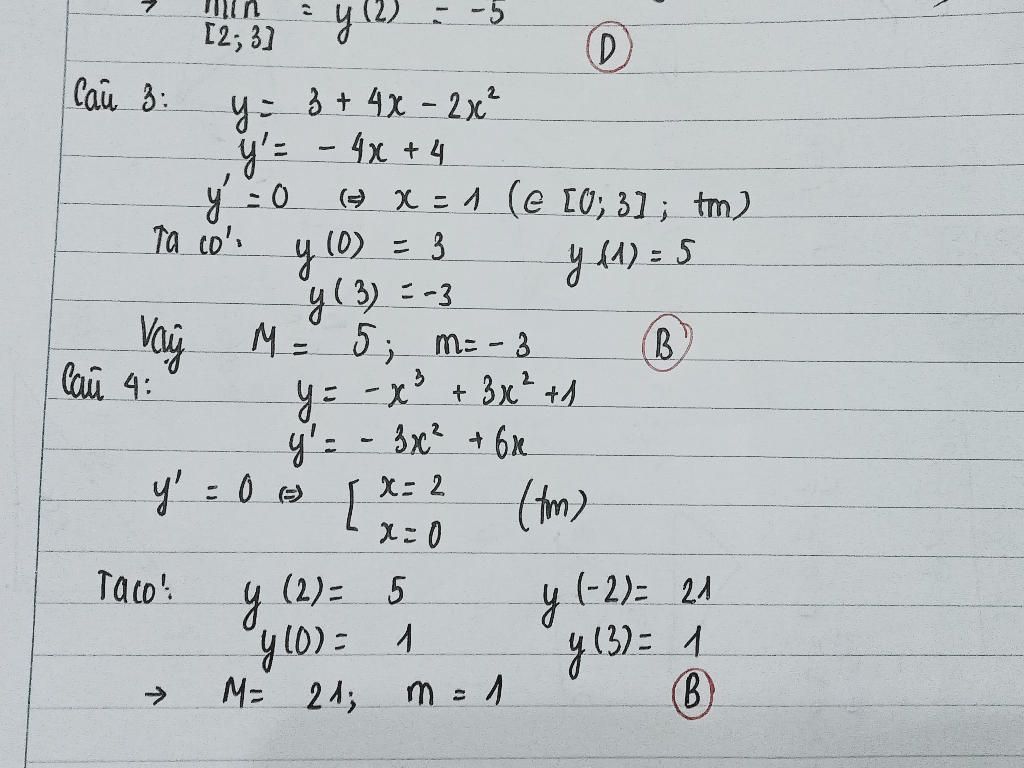 → min = y(2) = -5
[2; 3]
D
Câu 3: y = 3 + 4x - 2x²
y' = - 4x + 4
y' = 0 ⇔ x = 1 (∈ [0; 3]; tm)
Ta có: y(0) = 3 y(1) = 5
y(3) = -3
Vậy M = 5; m = -3 B
Câu 4: y = -x³ + 3x² + 1
y' = - 3x² + 6x
y' = 0 ⇔ [ x = 2 (tm)
x = 0
Ta có: y(2) = 5 y(-2) = 21
y(0) = 1 y(3) = 1
→ M = 21; m = 1 B